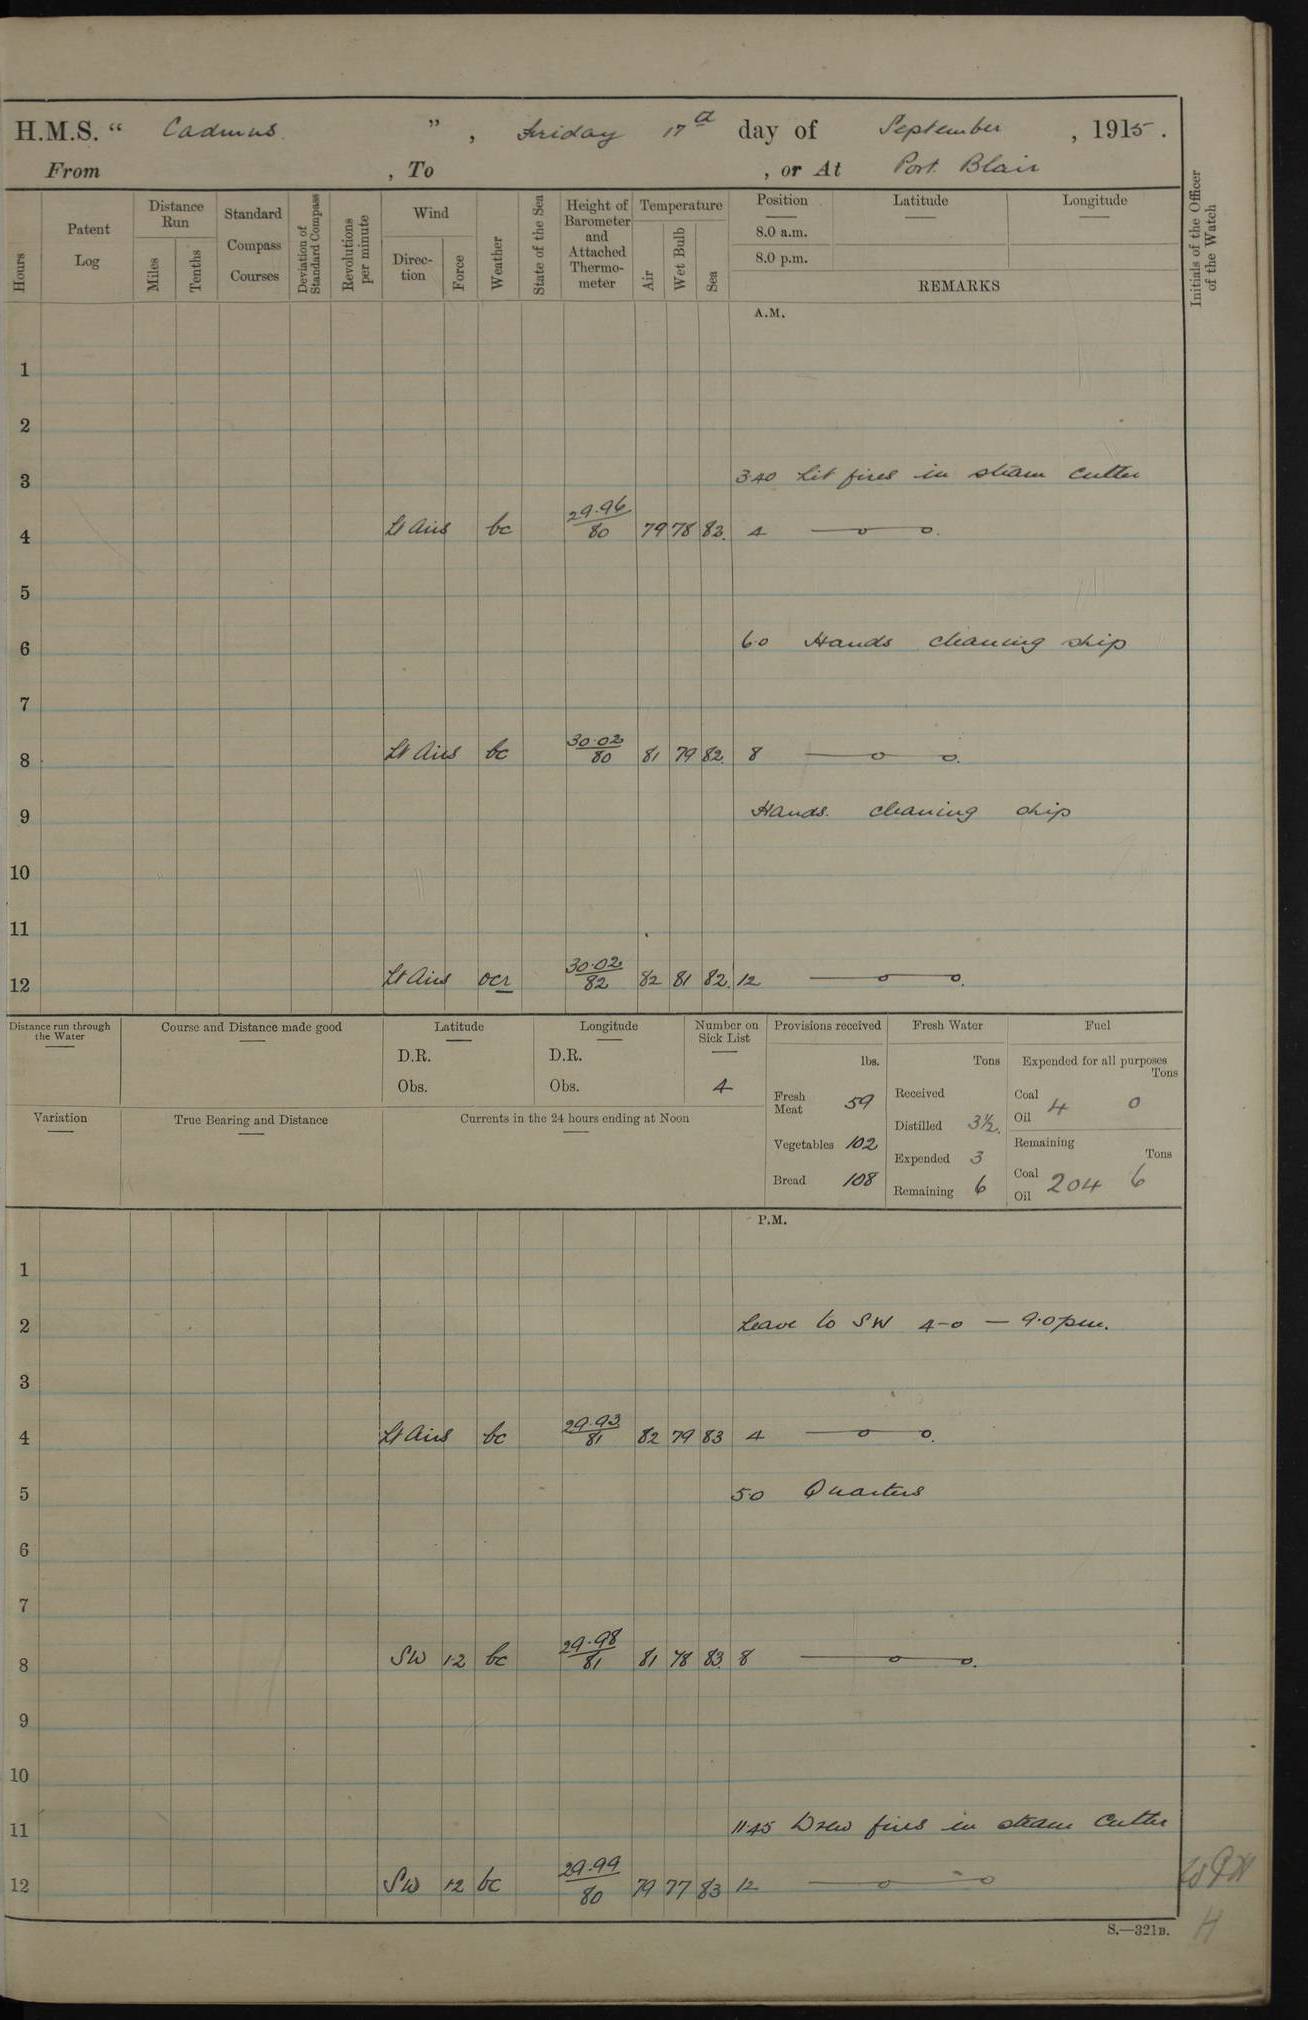 H.M.S. “ Cadmus ” , Friday 17th day of September , 1915 .
From , To , or At Port Blair
Hours
Patent Log
Distance Run
Miles
Tenths
Standard Compass Courses
Deviation of Standard Compass
Revolutions per minute
Wind
Direction
Force
Weather
State of the Sea
Height of Barometer and Attached Thermometer
Temperature
Air
Wet Bulb
Sea
Position
8.0 a.m.
8.0 p.m.
Latitude
Longitude
REMARKS
Initials of the Officer of the Watch
A.M.
1
2
3 3.40 Lit fires in steam cutter
4 Lt Airs bc 29.96/80 79 78 83. 4 —o—o.
5
6 6.0 Hands cleaning ship
7
8 Lt Airs bc 30.02/80 81 79 82. 8 —o—o.
9 Hands. cleaning ship
10
11
12 Lt Airs ocr 30.02/82 82 81 82. 12 —o—o.
Distance run through the Water
Course and Distance made good
Latitude
D.R.
Obs.
Longitude
D.R.
Obs.
Number on Sick List
4
Variation
True Bearing and Distance
Currents in the 24 hours ending at Noon
Provisions received
lbs.
Fresh Meat 59
Vegetables 102
Bread 108
Fresh Water
Tons
Received
Distilled 3½.
Expended 3
Remaining 6
Fuel
Expended for all purposes
Tons
Coal
Oil 4 0
Remaining
Tons
Coal
Oil 204 6
P.M.
1
2 Leave to SW 4-0 — 9.0 pm.
3
4 Lt Airs bc 29.93/81 82 79 83 4 —o—o.
5 5.0 Quarters
6
7
8 SW 1.2 bc 29.98/81 81 78 83. 8 —o—o.
9
10
11 11.45 Drew fires in steam Cutter
12 SW 1.2 bc 29.99/80 79 77 83 12 —o—o
H
S.—321B.